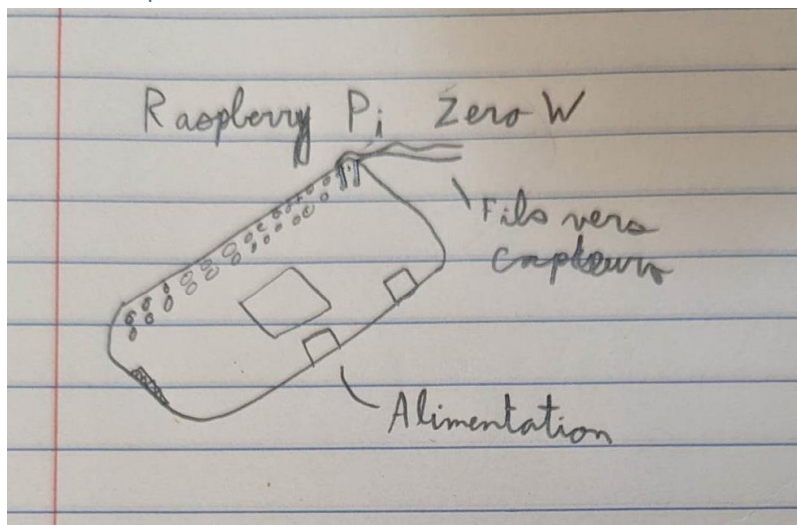 Raspberry Pi Zero W
Fils vers
capteurs
Alimentation